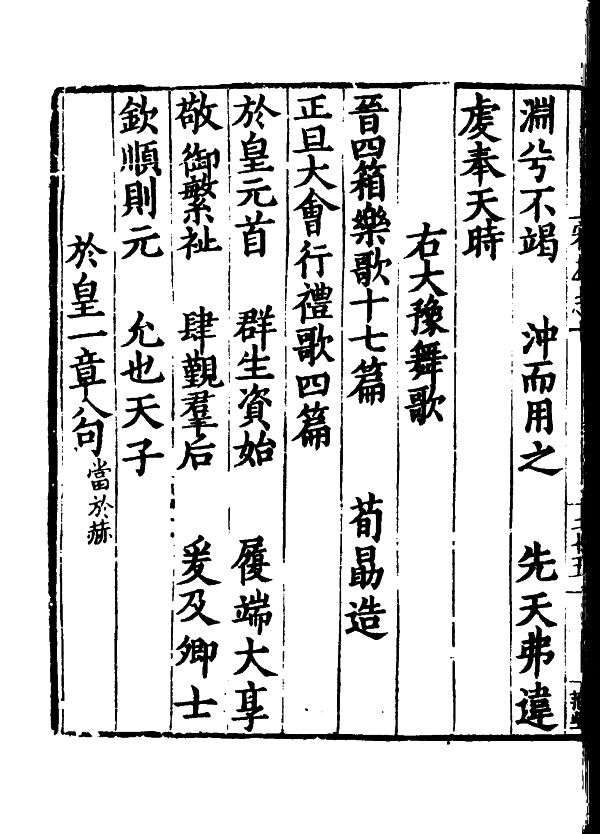 淵兮不竭　沖而用之　先天弗違
虔奉天時
右大豫舞歌
晉四箱樂歌十七篇　荀勗造
正旦大會行禮歌四篇
於皇元首　群生資始　履端大享
敬御繁祉　肆覲羣后　爰及卿士
欽順則元　允也天子
於皇一章八句當於赫